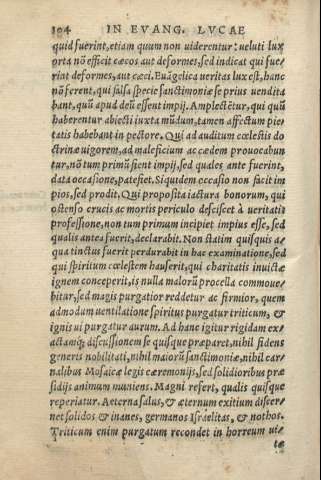 104 IN EVANG. LVCAE
quid fuerint, etiam quum non uiderentur: ueluti lux
orta nō efficit cæcos aut deformes, sed indicat qui fue/
rint deformes, aut cæci. Euāgelica ueritas lux est, hanc
nō ferent, qui falsa specie sanctimoniæ se prius uendita
bant, quū apud deū essent impij. Amplectētur, qui quū
haberentur abiecti iuxta mūdum, tamen affectum pie/
tatis habebant in pectore. Qui ad auditum cœlestis do
ctrinæ uigorem, ad maleficium ac cædem prouocabun
tur, nō tum primū fient impij, sed quales ante fuerint,
data occasione, patefiet. Siquidem occasio non facit im
pios, sed prodit. Qui proposita iactura bonorum, qui
ostenso crucis ac mortis periculo desciscet à ueritatis
professione, non tum primum incipiet impius esse, sed
qualis antea fuerit, declarabit. Non statim quisquis a/
qua tinctus fuerit perdurabit in hac examinatione, sed
qui spiritum cœlestem hauserit, qui charitatis inuictæ
ignem conceperit, is nulla malorū procella commoue/
bitur, sed magis purgatior reddetur ac firmior, quem
admodum uentilatione spiritus purgatur triticum, &
igni ui purgatur aurum. Ad hanc igitur rigidam ex/
actamq; discussionem se quisque præparet, nihil fidens
generis nobilitati, nihil maiorū sanctimoniæ, nihil car/
nalibus Mosaicæ legis cæremonijs, sed solidioribus præ
sidijs animum muniens. Magni refert, qualis quisque
reperiatur. Aeterna salus, & æternum exitium discer/
net solidos & inanes, germanos Israëlitas, & nothos.
Triticum enim purgatum recondet in horreum ui/
tæ